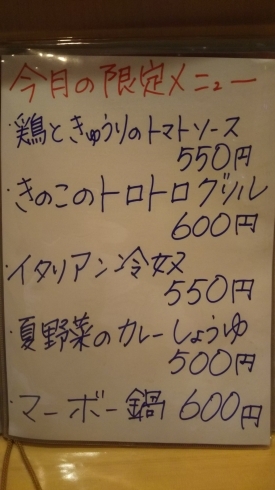 今月の限定メニュー
・鶏ときゅうりのトマトソース
550円
・きのこのトロトログリル
600円
・イタリアン冷奴
550円
・夏野菜のカレーしょうゆ
500円
・マーボー鍋 600円